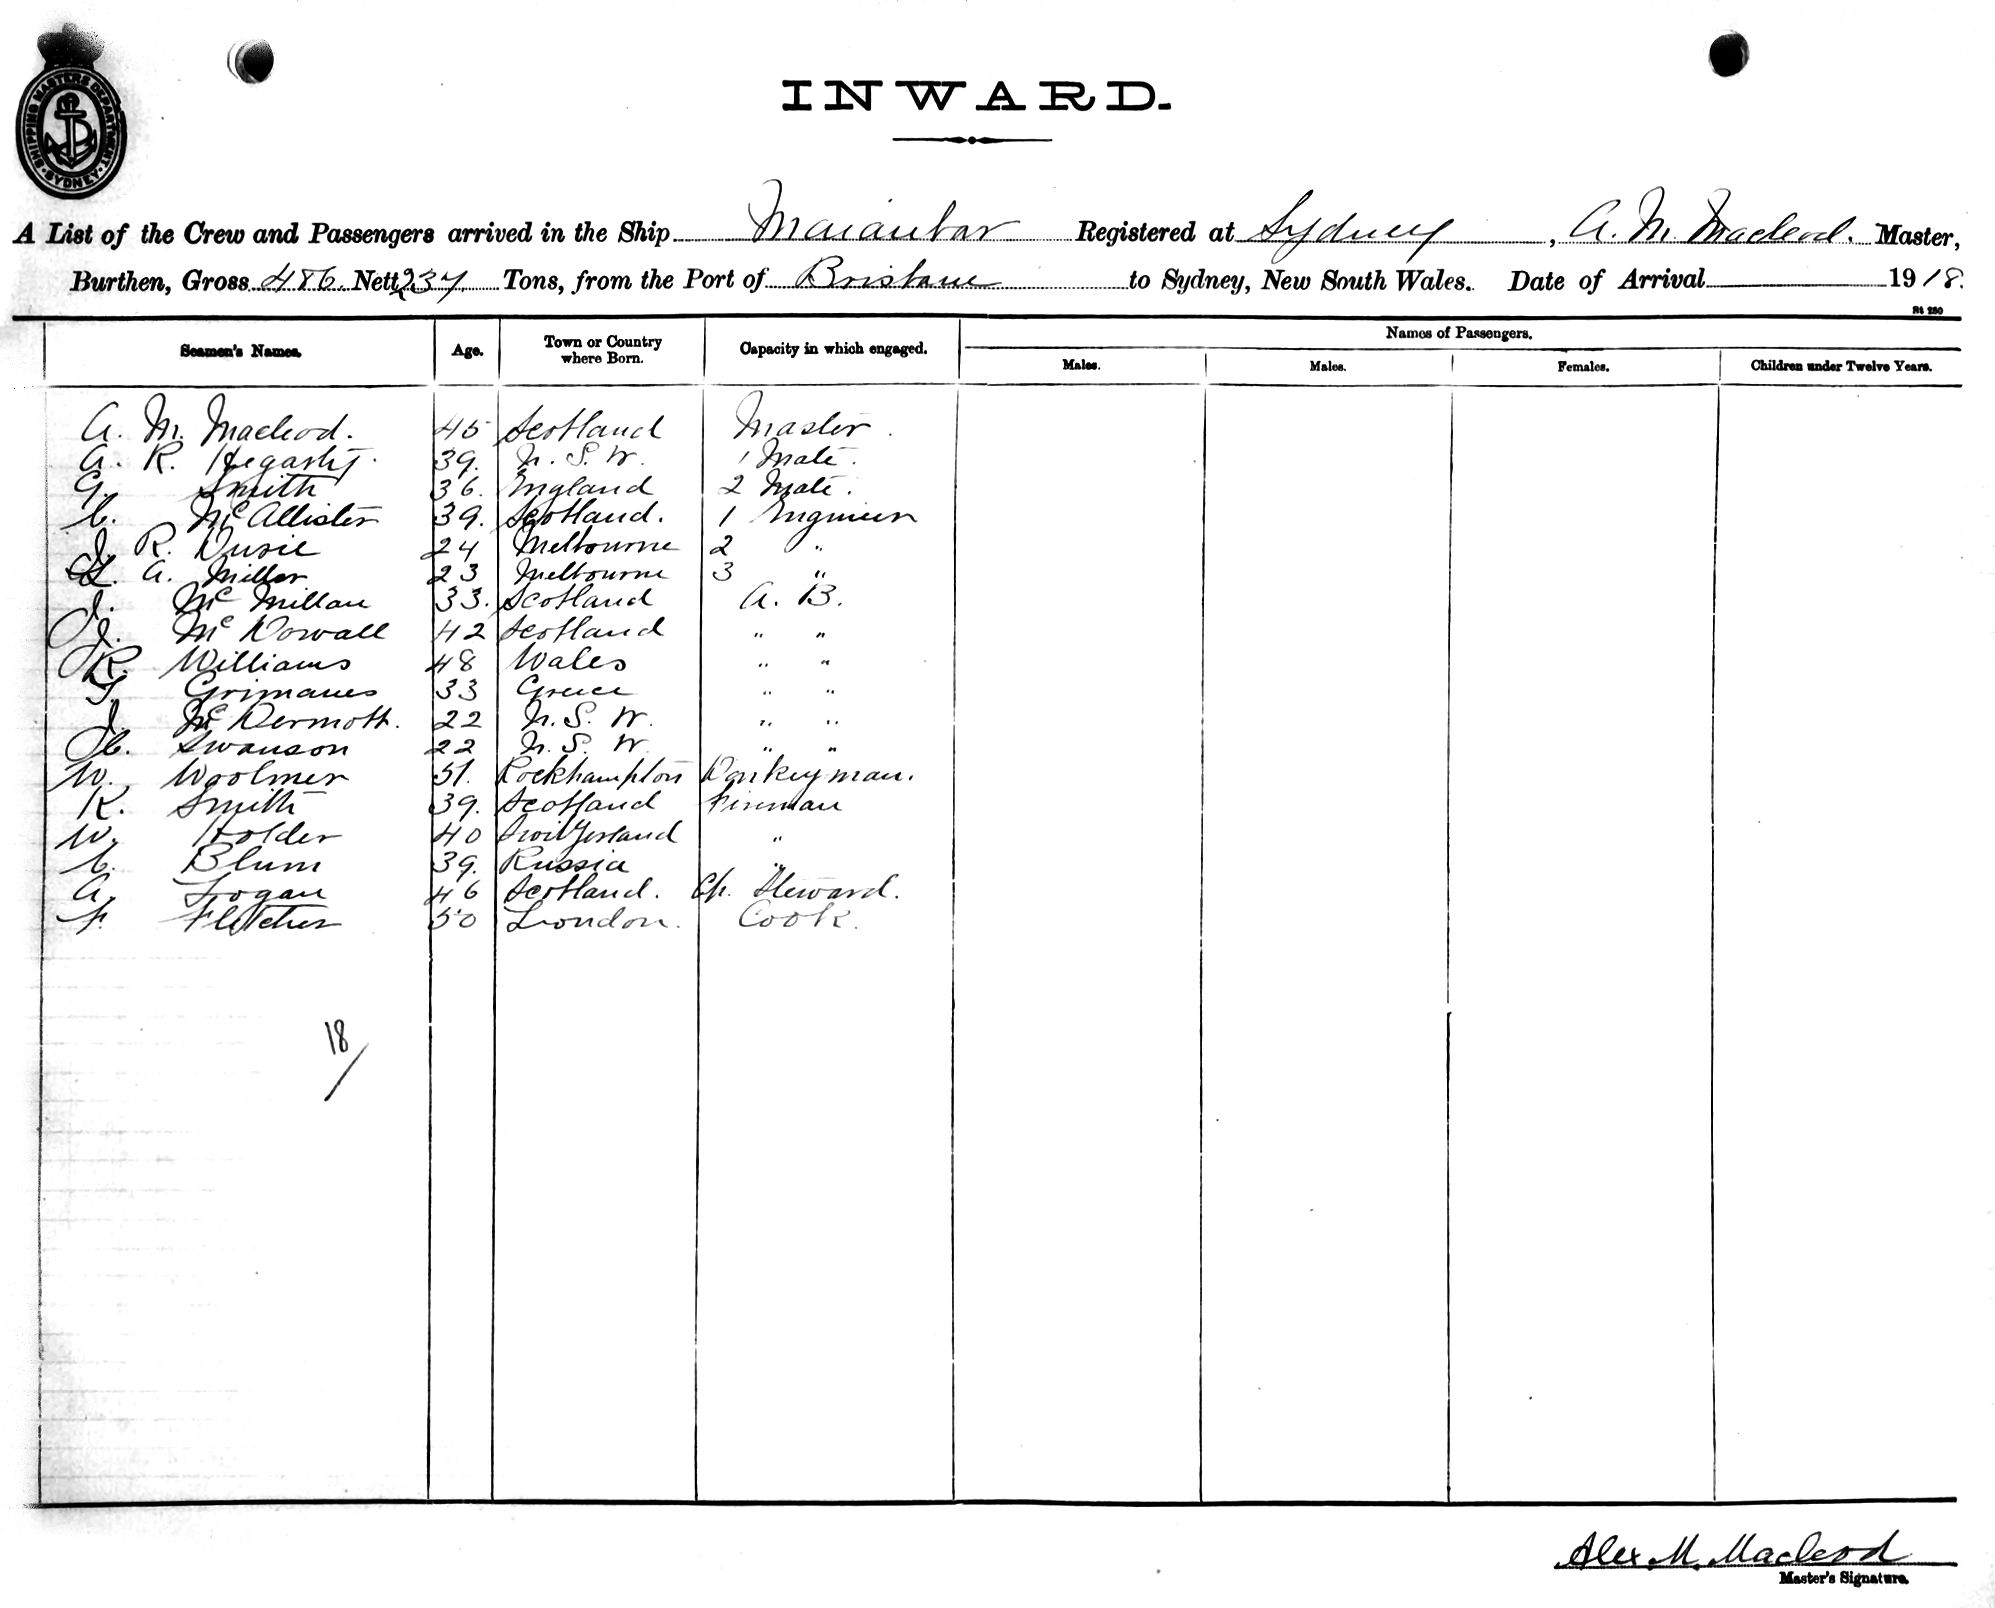 SHIPPING MASTERS DEPARTMENT
SYDNEY
INWARD.
A List of the Crew and Passengers arrived in the Ship Maianbar Registered at Sydney, A. M. Macleod. Master,
Burthen, Gross 486. Nett 237 Tons, from the Port of Brisbane to Sydney, New South Wales. Date of Arrival 1918.
St 250
Seamen's Names. Age. Town or Country where Born. Capacity in which engaged. Names of Passengers.
Males. Males. Females. Children under Twelve Years.
A. M. Macleod. 45 Scotland Master.
A. R. Hegarty. 39. N. S. W. 1 Mate.
G. Smith 36. England 2 Mate.
C. McAllister 39. Scotland. 1 Engineer
J. R. Durie 24 Melbourne 2 "
A. Miller 23 Melbourne 3 "
J. McMillan 33. Scotland A. B.
J. McDowall 42 Scotland " "
R. Williams 48 Wales " "
Grimanes 33 Greece " "
J. McDermott. 22 N. S. W. " "
C. Swanson 22 N. S. W. " "
W. Woolmer 51. Rockhampton Donkeyman.
R. Smith 39. Scotland Fireman
W. Holder 40 Switzerland "
C. Blum 39. Russia "
A. Logan 46 Scotland. Ch. Steward.
F. Fletcher 50 London. Cook.
18/
Alex. M. Macleod
Master's Signature.